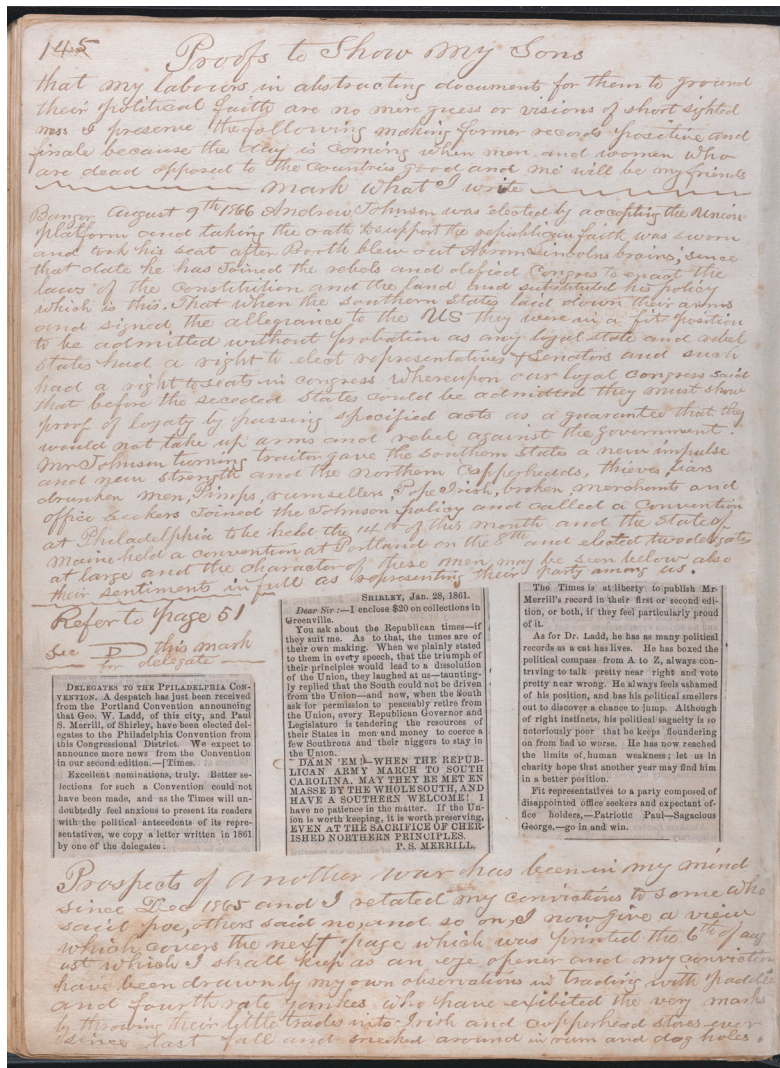 145
Proofs to Show my Sons
that my labours in abstracting documents for them to ground
their political faith are no mere guess or visions of short sighted
mess I preserve the following making former records positive and
finale because the day is coming when men and women who
are dead opposed to the countries good and me will be my friends
mark what I write
Bangor August 9th 1866 Andrew Johnson was elected by accepting the Union
platform and taking the oath to support the republican faith was sworn
and took his seat after Booth blew out Abrom Lincolns brains, since
that date he has joined the rebels and defied Congres to enact the
laws of the Constitution and the land and substituted his policy
which is this. That when the southern States laid down their arms
and signed the allegiance to the US they were in a fit position
to be admitted without probation as any loyal state and rebel
States had a right to elect representatives & Senators and such
had a right to seats in congress Whereupon our loyal Congress said
that before the seceded States could be admitted they must show
proof of loyaty by passing specified acts as a guarantee that they
would not take up arms and rebel against the government.
Mr Johnson turning traitor gave the Southern States a new impulse
and new strength and the northern Copperhedds, thieves, liars
drunken men, Pimps, rumsellers, Pope Irish, broken merchants and
office seekers joined the Johnson policy and called a Convention
at Philadelphia to be held the 14th of this month and the State of
Maine held a convention at Portland on the 8th and elected two delegates
at large and the character of these men may be seen below also
their sentiments in full as representing their Party among us.
Refer to page 51
See D this mark
for delegate
DELEGATES TO THE PHILADELPHIA CON-
VENTION. A despatch has just been received
from the Portland Convention announcing
that Geo. W. Ladd, of this city, and Paul
S. Merrill, of Shirley, have been elected del-
egates to the Philadelphia Convention from
this Congressional District. We expect to
announce more news from the Convention
in our second edition.—[Times.
Excellent nominations, truly. Better se-
lections for such a Convention could not
have been made, and as the Times will un-
doubtedly feel anxious to present its readers
with the political antecedents of its repre-
sentatives, we copy a letter written in 1861
by one of the delegates:
SHIRLEY, Jan. 28, 1861.
Dear Sir:—I enclose $20 on collections in
Greenville.
You ask about the Republican times—if
they suit me. As to that, the times are of
their own making. When we plainly stated
to them in every speech, that the triumph of
their principles would lead to a dissolution
of the Union, they laughed at us—taunting-
ly replied that the South could not be driven
from the Union—and now, when the South
ask for permission to peaceably retire from
the Union, every Republican Governor and
Legislature is tendering the resources of
their States in men and money to coerce a
few Southrons and their niggers to stay in
the Union.
DAMN 'EM!—WHEN THE REPUB-
LICAN ARMY MARCH TO SOUTH
CAROLINA, MAY THEY BE MET EN
MASSE BY THE WHOLE SOUTH, AND
HAVE A SOUTHERN WELCOME! I
have no patience in the matter. If the Un-
ion is worth keeping, it is worth preserving,
EVEN AT THE SACRIFICE OF CHER-
ISHED NORTHERN PRINCIPLES.
P. S. MERRILL.
The Times is at liberty to publish Mr.
Merrill's record in their first or second edi-
tion, or both, if they feel particularly proud
of it.
As for Dr. Ladd, he has as many political
records as a cat has lives. He has boxed the
political compass from A to Z, always con-
trving to talk pretty near right and vote
pretty near wrong. He always feels ashamed
of his position, and has his political smellers
out to discover a chance to jump. Although
of right instincts, his political sagacity is so
notoriously poor that he keeps floundering
on from bad to worse. He has now reached
the limits of human weakness; let us in
charity hope that another year may find him
in a better position.
Fit representatives to a party composed of
disappointed office seekers and expectant of-
fice holders,—Patriotic Paul—Sagacious
George,—go in and win.
Prospects of another war has been in my mind
since Dec 1865 and I related my convictions to some who
said poe, others said no, and so on, I now give a view
which covers the next page which was printed the 6th of aug
ust which I shall keep as an eye opener and my conviction
have been drawn by my own observations in trading with
and fourth rate yankes who have exibited the very marks
by throwing their little trades into Irish and copperhead stores ever
since last fall and sneeked around in rum and dog holes.